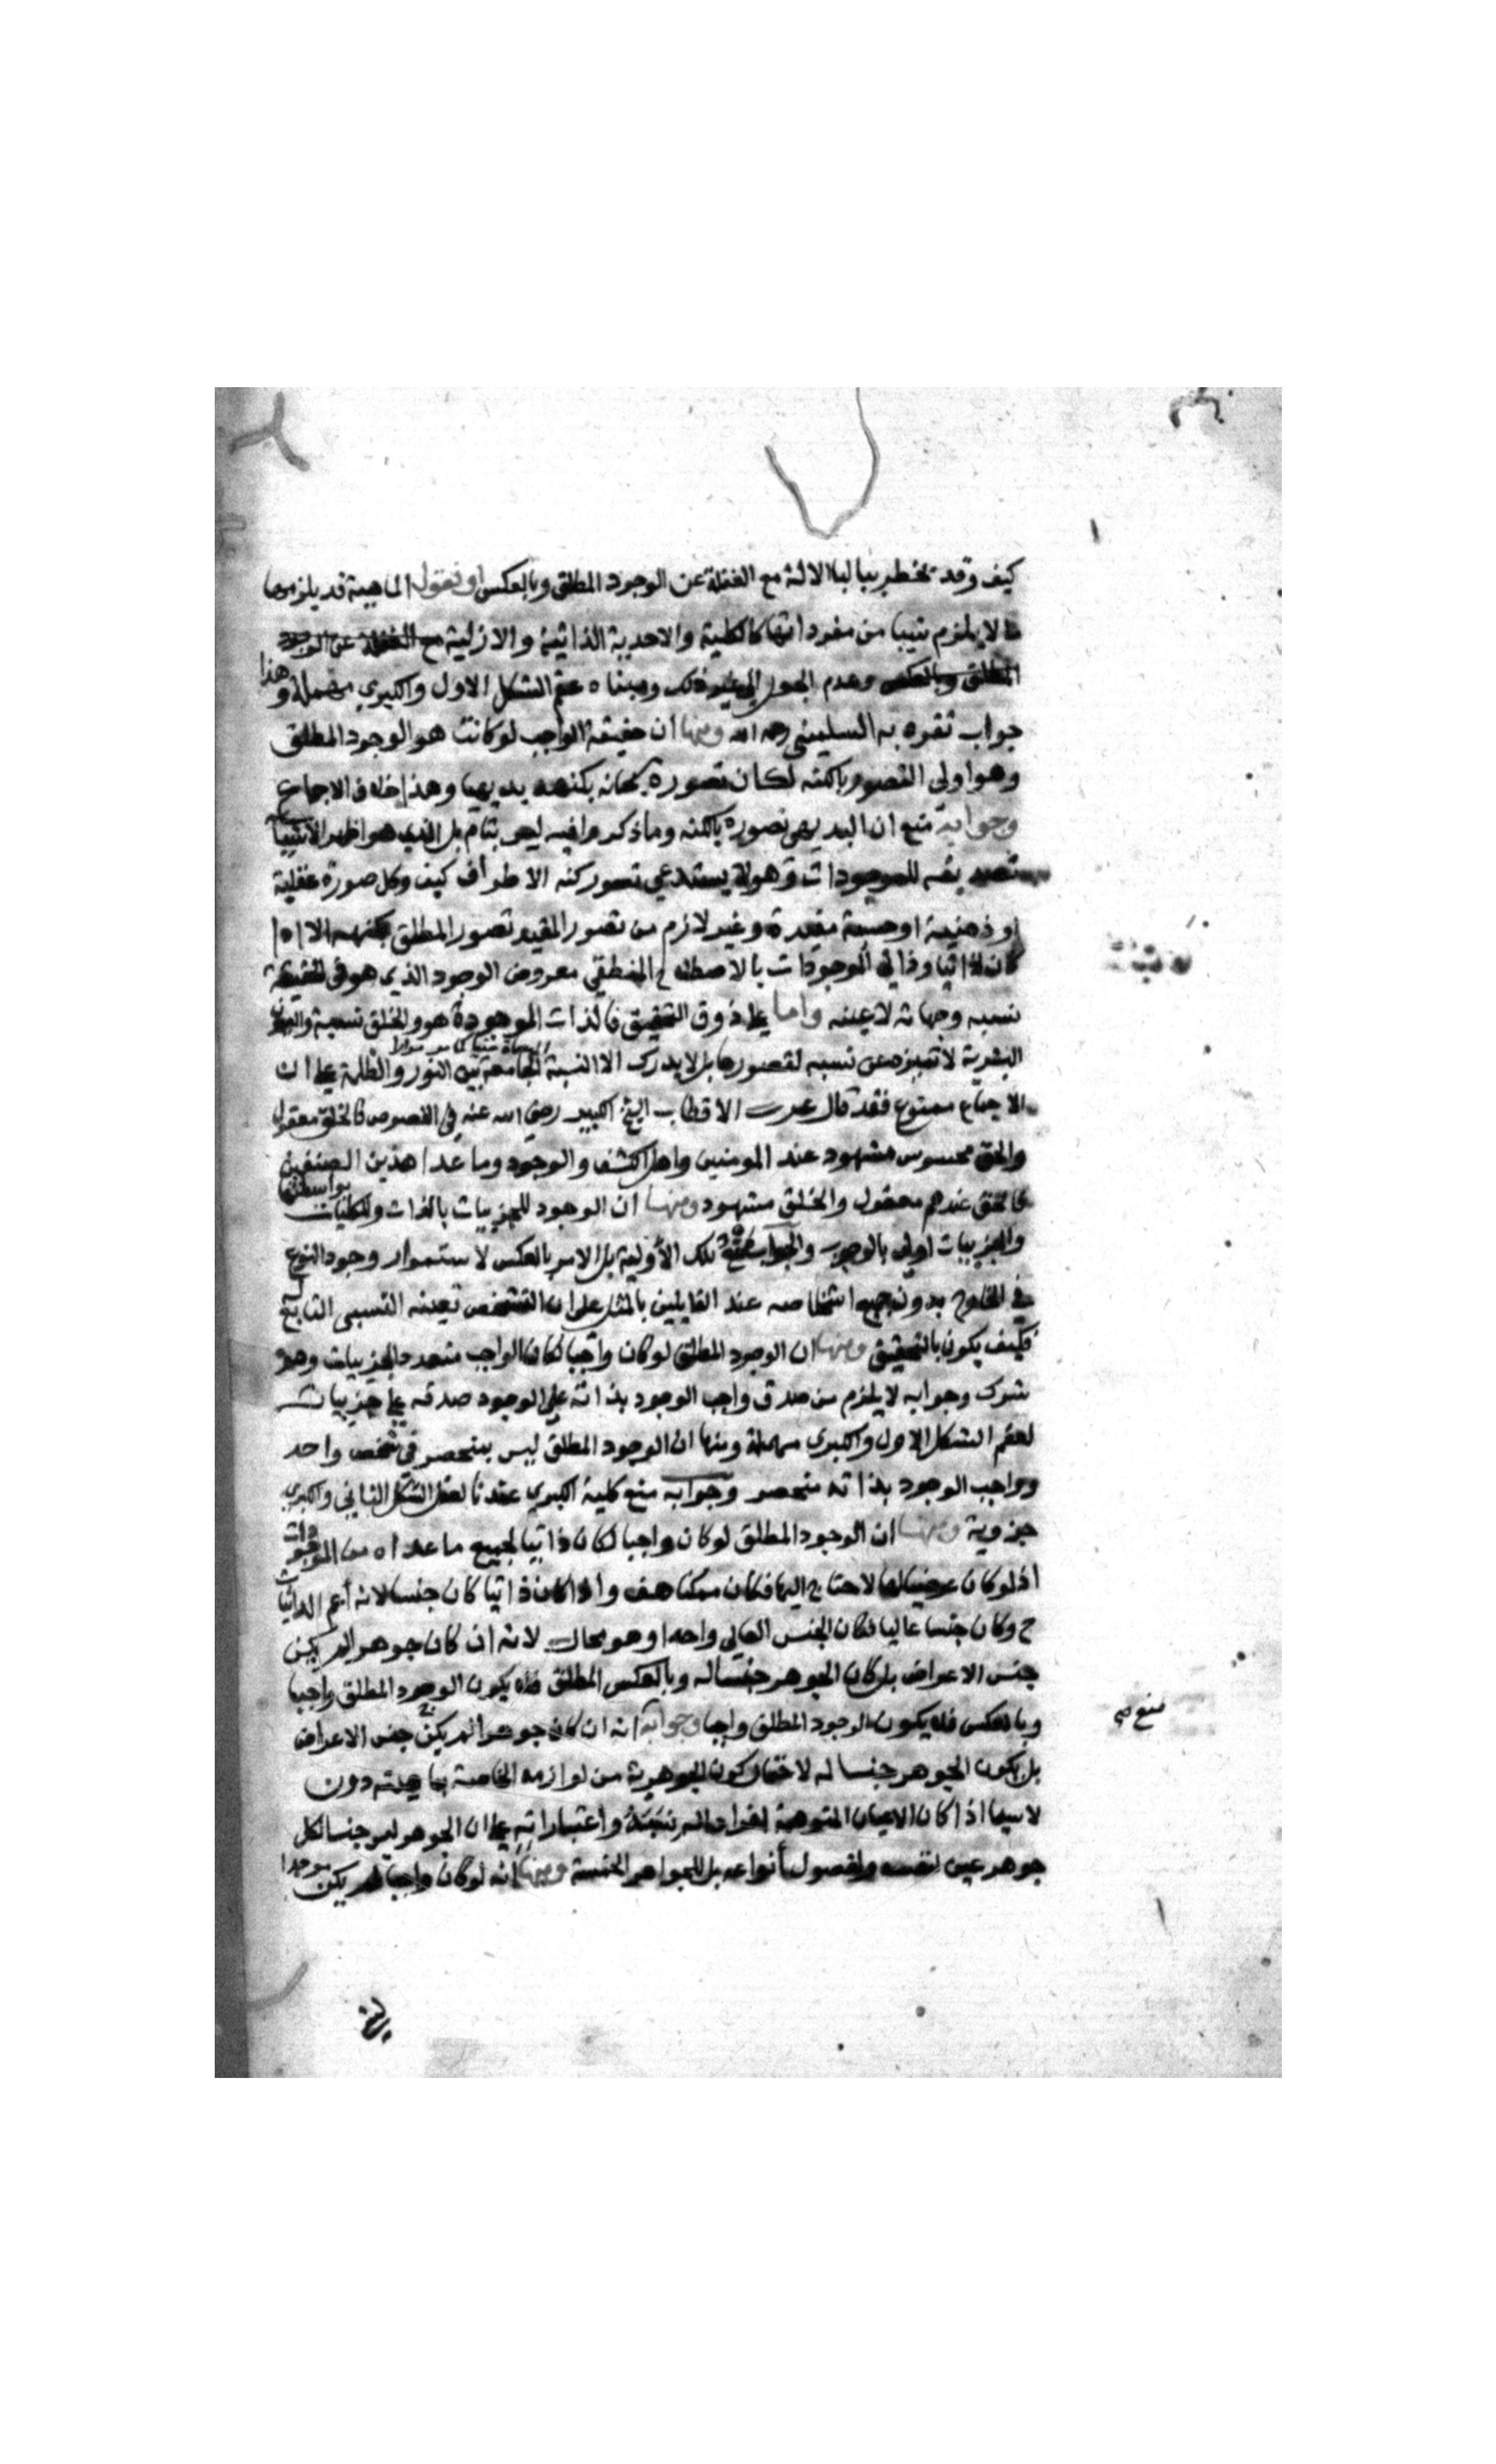 كيف وقد تخطر ببالنا الالة مع الغفلة عن الوجود المطلق وبالعكس او نقول الماهية قد يلزمها
ما لا يلزم شيبا من مفرداتها كالكلية والاحدية الذاتية والازلية مع الغفلة عن الوجود
المطلق وبالعكس وعدم الجعل الى غير ذلك ومبناه عقم الشكل الاول والكبري مهملة وهذا
جواب تفرد به السليمني رحمه الله ومنها ان حقيقة الواجب لو كانت هو الوجود المطلق
وهو اولي التصور بالكنه لكان تصوره بكنهه بديهيا وهذا خلاف الاجماع
وجوابه منع ان البديهي تصوره بالكنه وما ذكر فيه ليس بتام بل الذي هو اظهر الاشيا
تصديقه للموجودات وهو لا يستدعي تصور كنه الاطراف كيف وكل صورة عقلية
او ذهنية او حسية مقيدة وغير لازم من تصور المقيد تصور المطلق بكنهه الا اذا
كان ذاتيا وذاتي الموجودات بالاصطلاح المنطقي معروض الوجود الذي هو في الحقيقة
نسبه وجهاته لا عينه واما على ذوق التحقيق فالذات الموجودة هو والخلق نسبة
البشرية لا تميزه عن نسبه لقصورها بل لا يدرك الا النسبة الجامعة بين النور والظلمة على ان
الاجماع ممنوع فقد قال الاقطاب الشيخ الكبير رضي الله عنه في الفصوص فالخلق معقول
والحق محسوس مشهود عند المومنين واهل الكشف والوجود وما عدا هذين الصنفين
فالحق عندهم معقول والخلق مشهود ومنها ان الوجود للجزييات بالذات وللكليات بواسطتها
والجزييات اولى بالوجوب والجواب منع تلك الاولية بل الامر بالعكس لاستمرار وجود النوع
في الخارج بدون جميع اشخاصه عند القايلين بالمثل على ان التشخص تعينه النسبي التابع
فكيف يكون بالتحقيق ومنها ان الوجود المطلق لو كان واجبا لكان الواجب متعدد الجزييات وهو
شرك وجوابه لا يلزم من صدق واجب الوجود بذاته على الوجود صدقه على جزييات
لعقم الشكل الاول والكبري مهملة ومنها ان الوجود المطلق ليس بمنحصر في شخص واحد
وواجب الوجود بذاته منحصر وجوابه منع كلية الكبري عندنا لعقل الشكل الثاني والكبري
جزوية ومنها ان الوجود المطلق لو كان واجبا لكان ذاتيا لجميع ما عداه من الموجودات
اذ لو كان عرضيا لها لاحتاج اليها فكان ممكنا هف واذا كان ذاتيا كان جنسا لانه اعم الذاتيات
ح وكان جنسا عاليا فكان الجنس العالي واحدا وهو محال لانه ان كان جوهرا لم يكن
جنس الاعراض بل كان الجوهر جنسا له وبالعكس المطلق فلا يكون الوجود المطلق واجبا
وبالعكس فلا يكون الوجود المطلق واجبا وجوابه انه ان كان جوهرا لم يكن جنس الاعراض
بل يكون الجوهر جنسا له لاحتمال كون الجوهرية من لوازمه الخاصة بماهيته دون
لا سيما اذا كان الاعيان المتوهمة افراد المرتبته واعتباراته على ان الجوهر ليس جنسا لكل
جوهر عين لنفسه ولفصول انواعه بل للجواهر الخمسة ومنها انه لو كان واجبا لم يكن موجدا
منع صح